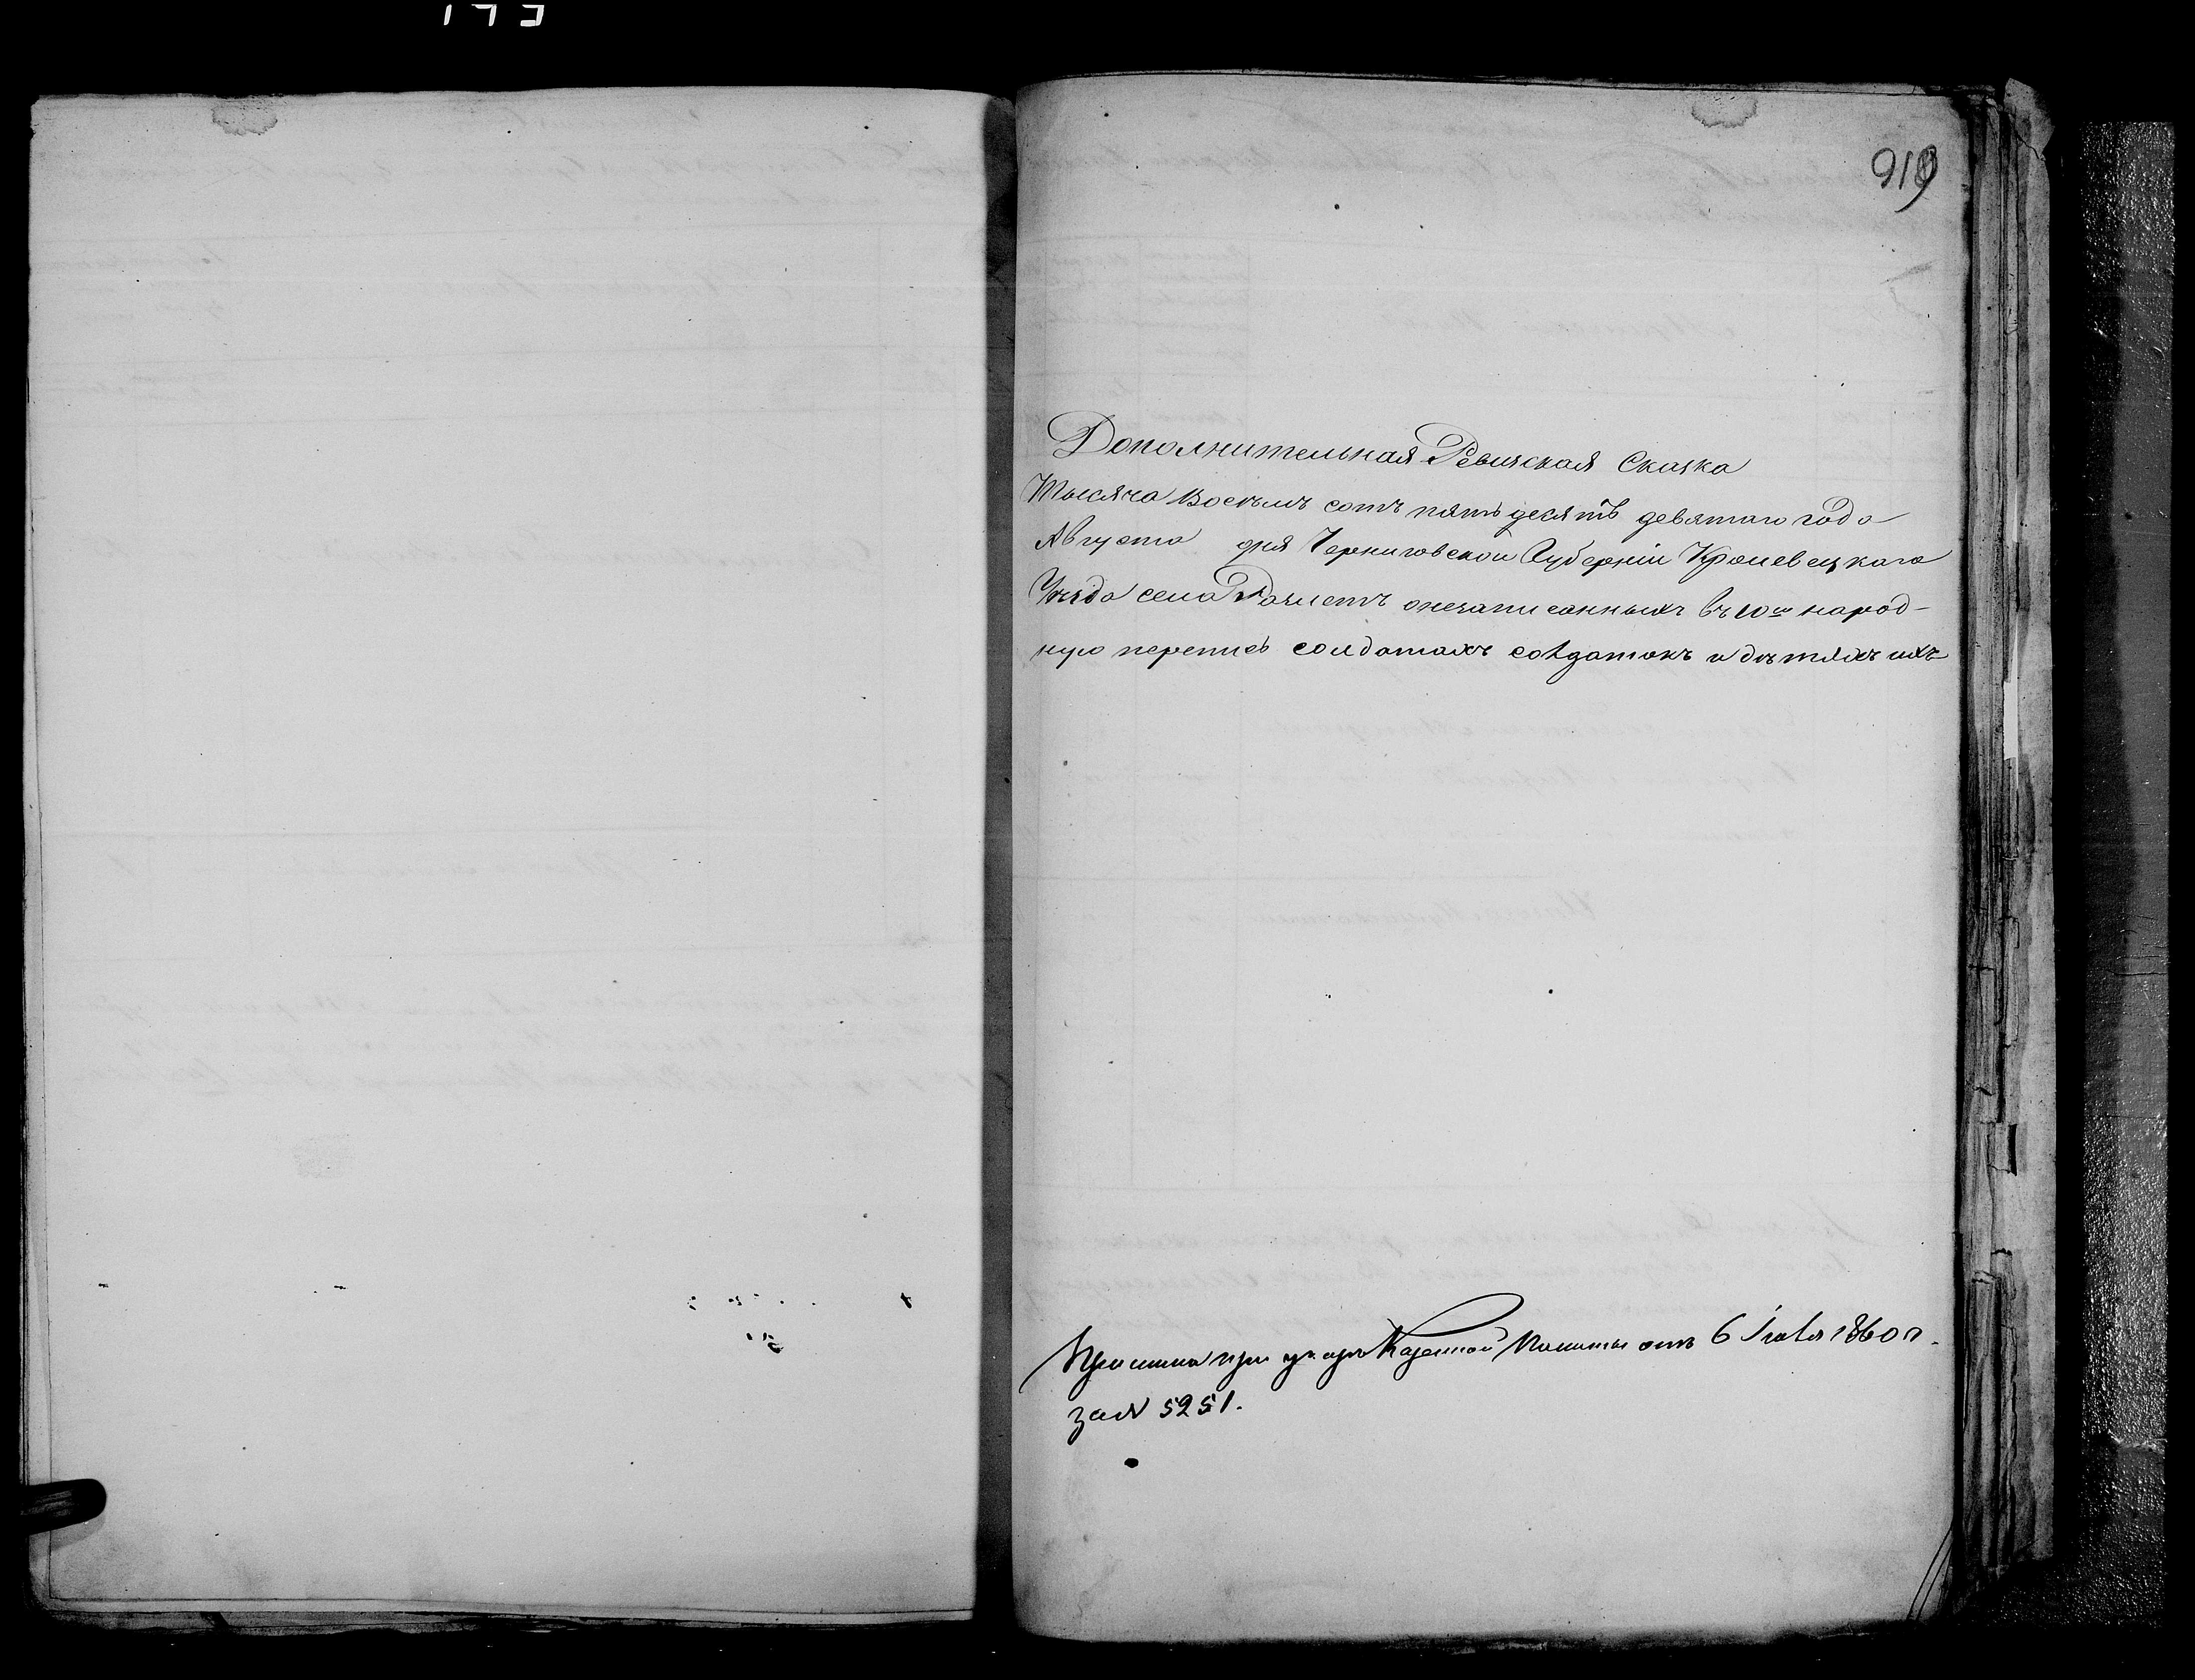 919
Дополнительная Ревизская Сказка
Тысяча восемь сотъ пять десятъ девятаго года
Августа дня Черниговской Губерніи Кролевецкаго
Уѣзда села Разлетъ о незаписанныхъ въ 10ю народ-
ную перепись солдатахъ солдатокъ и дѣтяхъ ихъ
при указѣ Казенной Палаты отъ 6 Іюля 1860 г.
за № 5251.